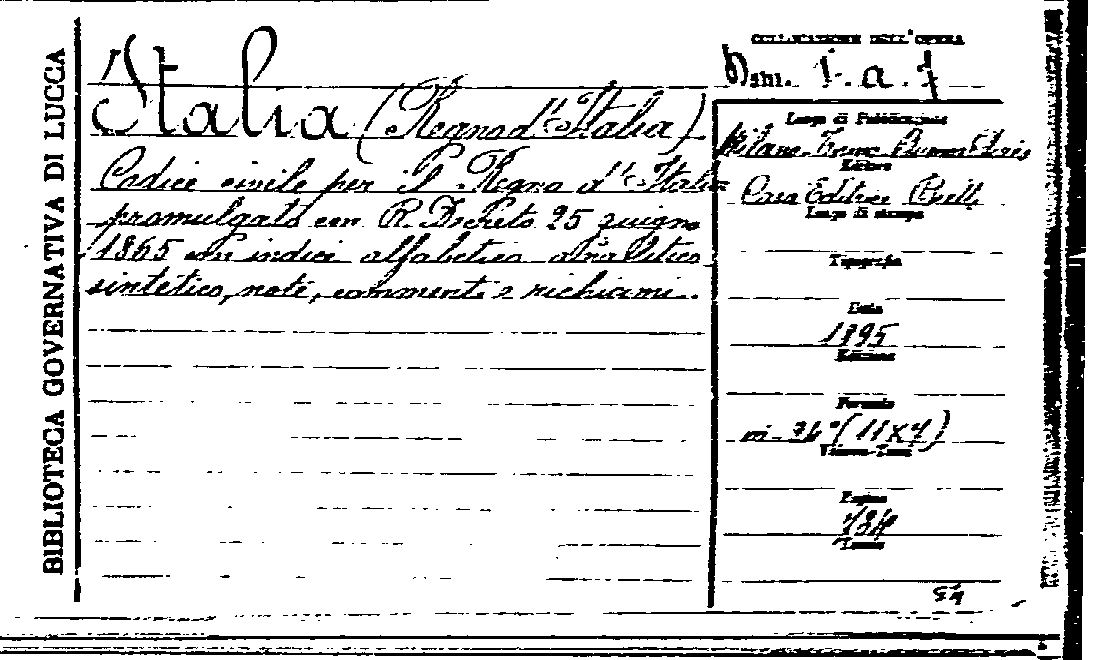 BIBLIOTECA GOVERNATIVA DI LUCCA
Italia (Regno d'Italia)
Codice civile per il Regno d'Italia
promulgato con R. Decreto 25 giugno
1865 con indice alfabetico analitico
sintetico, note, commenti e richiami.
COLLOCAZIONE DELL'OPERA
1. a. 7
Luogo di Pubblicazione
Milano
Editore
Casa Editrice
Luogo di stampa
Tipografia
Data
1895
Edizione
Formato
(11x7)
Pagine